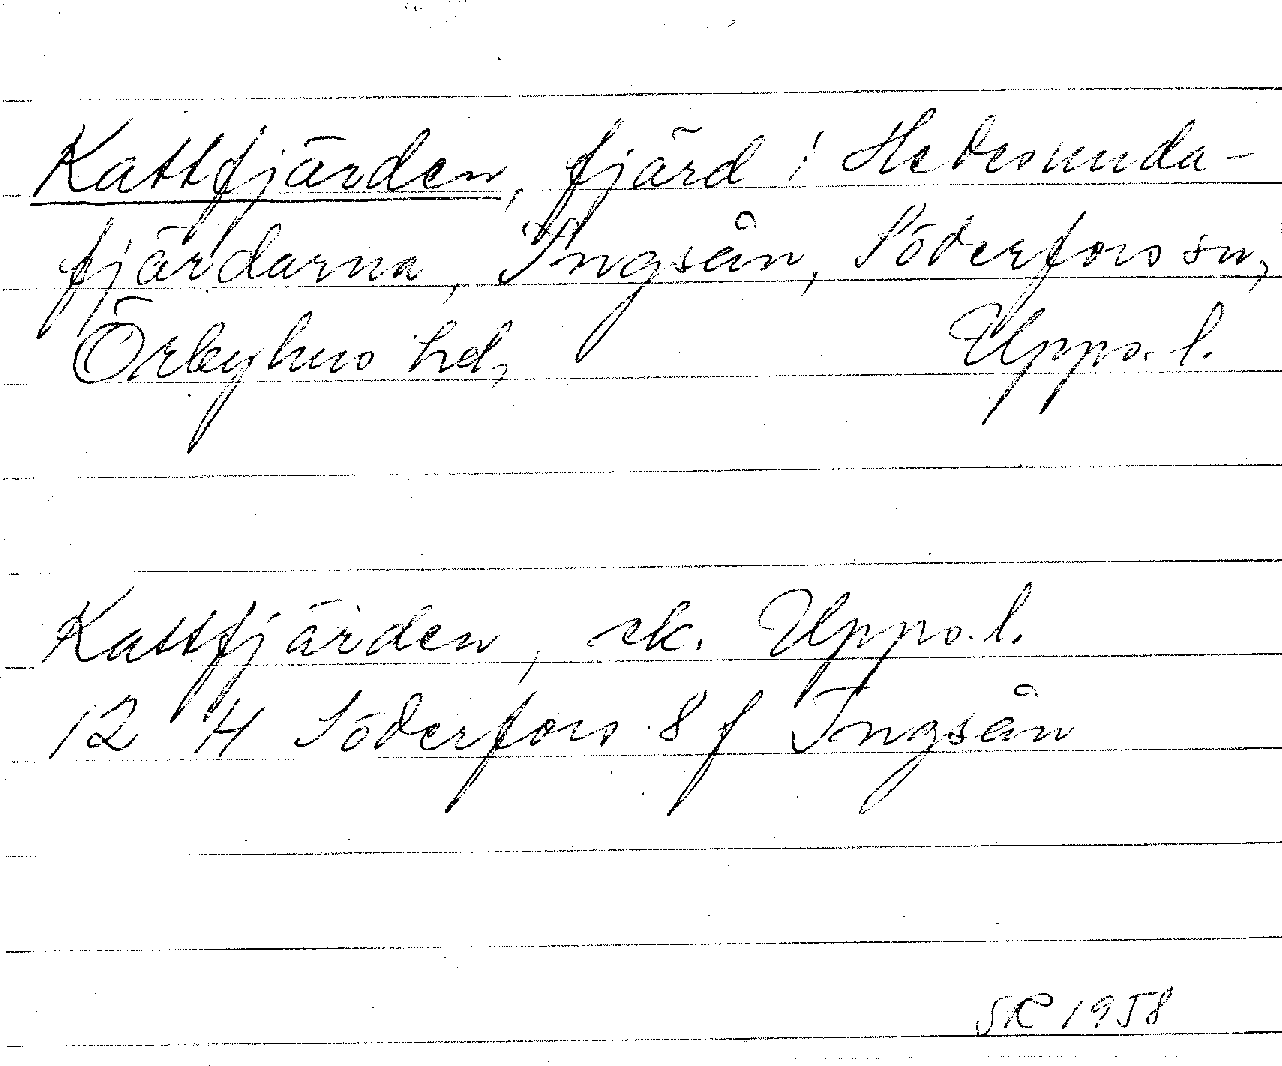 Kattfjärden, fjärd i Hedesunda-
fjärdarna, Tngsån, Söderfors sn,
Örbyhus hd, Upps. l.
Kattfjärden, ek. Upps. l.
12 H Söderfors 8 f Tngsån
SR 1958